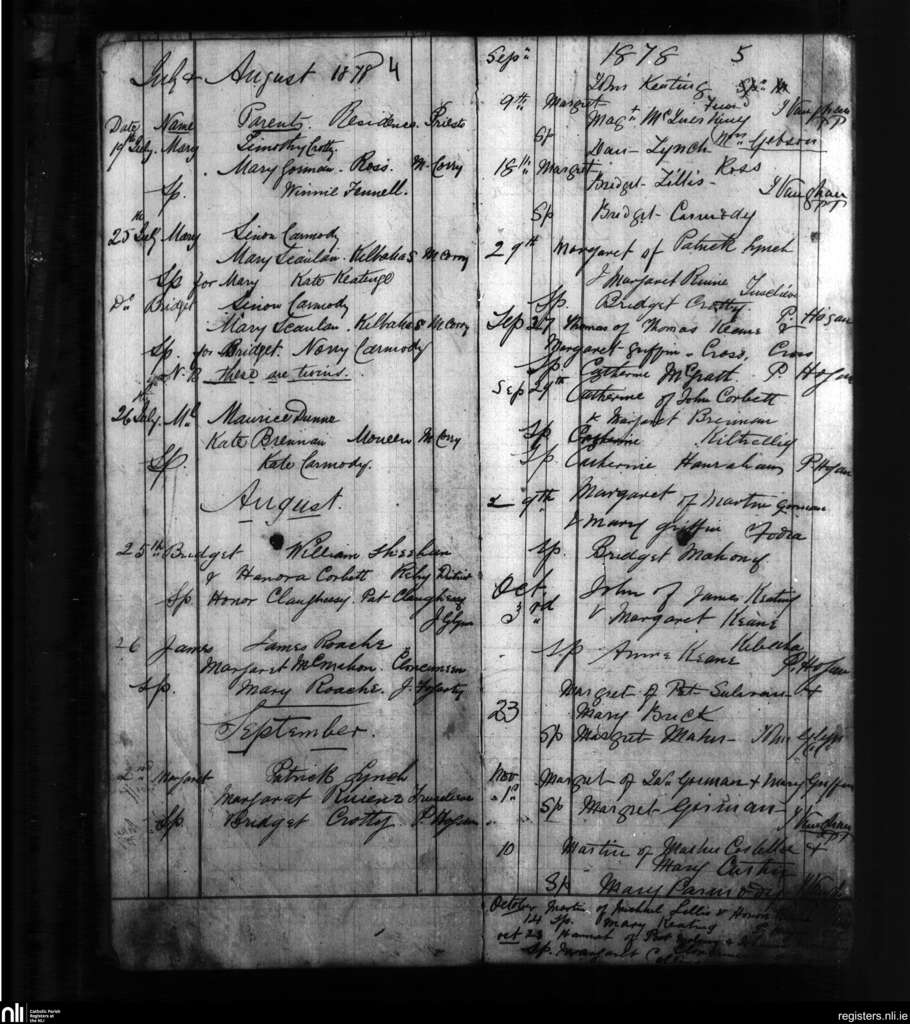 July & August 1878 4
Date Name Parents. Residence. Priests
19th July. Mary Timothy Crotty
Mary Gorman. Ross. McCorry
Sp. Winnie Fennell.
25th July Mary Sinon Carmody
Mary Scanlan. Kilbahas McCorry
Sp for Mary Kate Keatinge
Do Bridget Sinon Carmody
Mary Scanlan. Kilbahas McCorry
Sp. for Bridget. Norry Carmody
N.B there are twins.
26 July. Ml Maurice Dunne
Kate Brennan Moneen McCorry
Sp. Kate Carmody.
August.
25th Bridget William Sheehan
& Hanora Corbett District
Sp Honor Claughessy. Pat Claughessy
J Glynn
26 James James Roache
Margaret McMahon.
Sp. Mary Roache. J. Fogarty
September.
2nd Margaret Patrick Lynch
Margarat
Sp Bridget Crotty P. Hogan
Sepr 1878 5
John Keating
9th Margret Magt J Vaughan
PP
Sp Dan Lynch Mrs Gibson
18th Margret Ross
Bridget Lillis J Vaughan
PP
Sp Bridget Carmody
29th Margaret of Patrick Lynch
& Margaret
Sp. Bridget Crotty P. Hogan
Sep 27 Thomas of Thomas Keane &
Margaret Griffin. Cross. Cross
Sp Catherine McGrath. P. Hogan
Sep 29th Catherine of John Corbett
& Margaret Brennan
Sp Kiltrelleg
Sp. Catherine Hanrahan P Hogan
29th Margaret of Martin Gorman
& Mary Griffin Fodra
Sp. Bridget Mahony
Oct. John of James Keating
3rd & Margaret Keane
Kilbaha
Sp Anne Keane P. Hogan
Margret of Pat Sulivan +
23 Mary Brick
Sp Margret Maher John Glynn
Nov Margret of Gorman + Mary Griffin
1st
Sp Margret Gorman
J Vaughan
PP
10 Martin of +
Mary
Sp Mary Carmody
October Martin of Michael Lillis & Honor
14 Sp. Mary Keating
Oct 23 Hannah of
Sp. Margaret
nli Catholic Parish
Registers at
the NLI
registers.nli.ie